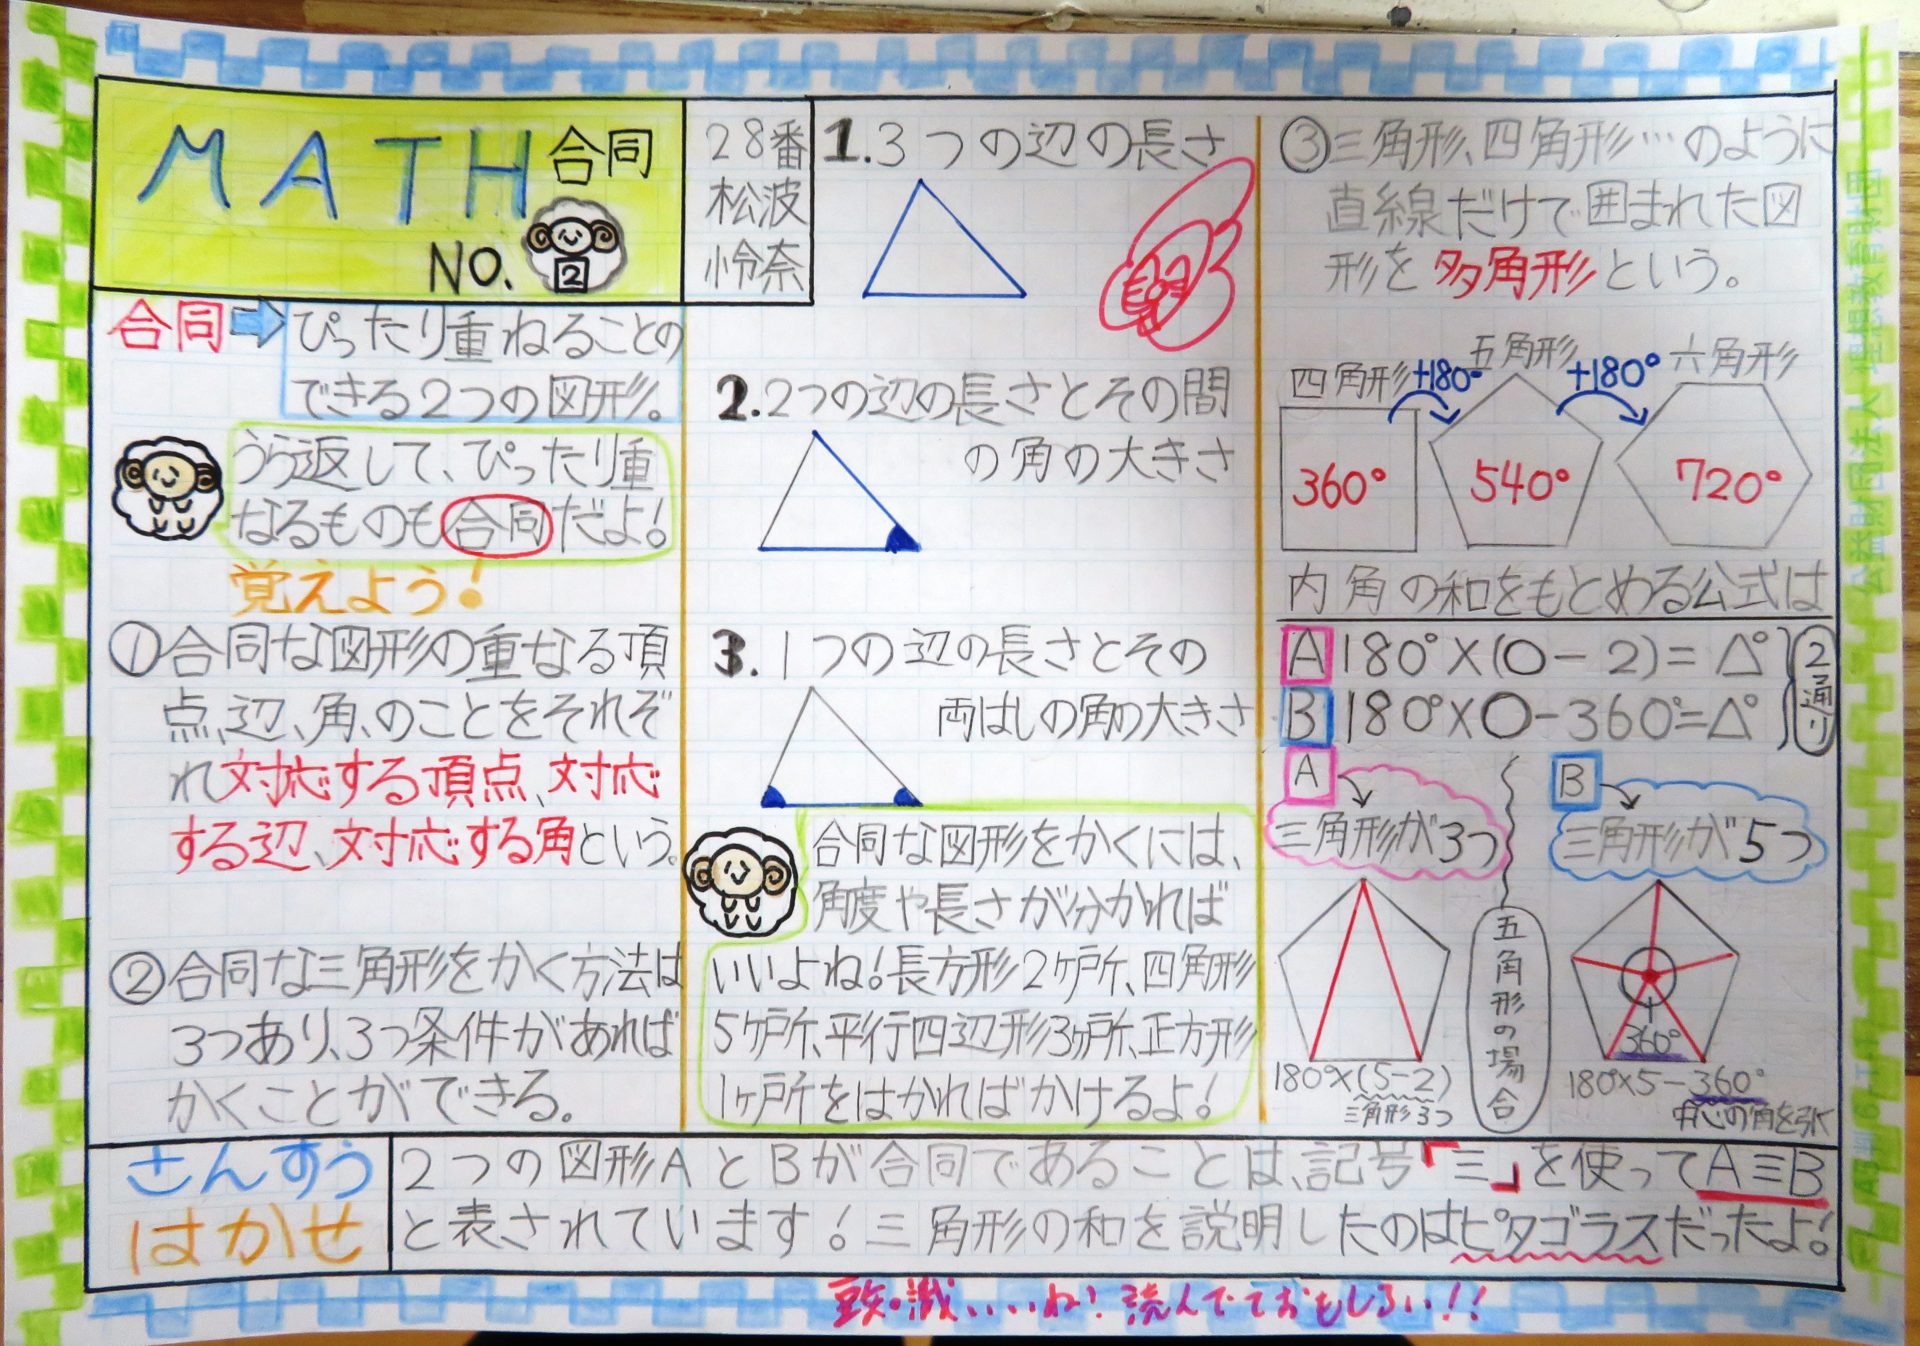 MATH 合同
NO. 2
28番
松波
怜奈
合同
ぴったり重ねることの
できる2つの図形。
うら返して、ぴったり重
なるものも合同だよ!
覚えよう!
①合同な図形の重なる頂
点、辺、角、のことをそれぞ
れ対応する頂点、対応
する辺、対応する角という。
②合同な三角形をかく方法は
3つあり、3つ条件があれば
かくことができる。
1.3つの辺の長さ
2.2つの辺の長さとその間
の角の大きさ
3.1つの辺の長さとその
両はしの角の大きさ
合同な図形をかくには、
角度や長さが分かれば
いいよね!長方形2ヶ所、四角形
5ヶ所、平行四辺形3ヶ所、正方形
1ヶ所をはかればかけるよ!
③三角形、四角形…のように
直線だけで囲まれた図
形を多角形という。
四角形 +180° 五角形 +180° 六角形
360° 540° 720°
内角の和をもとめる公式は
A 180°×(〇-2)=△°
B 180°×〇-360°=△°
2通り
A
三角形が3つ
B
三角形が5つ
五角形の場合
180°×(5-2)
三角形3つ
360°
180°×5-360°
中心の角を引く
さんすう
はかせ
2つの図形AとBが合同であることは、記号「≡」を使ってA≡B
と表されています!三角形の和を説明したのはピタゴラスだったよ!
豆知識いいね!読んでておもしろい!!